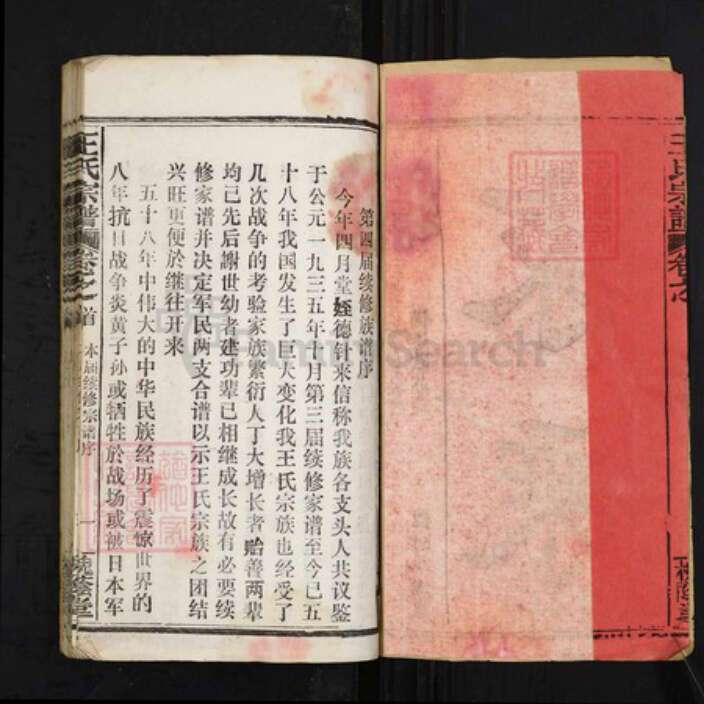 第四届续修族谱序
今年四月堂姪德针来信称我族各支头人共议鉴
于公元一九三五年十月第三届续修家谱至今已五
十八年我国发生了巨大变化我王氏宗族也经受了
几次战争的考验家族繁衍人丁大增长者贻善两辈
均已先后謝世幼者建功辈已相继成长故有必要续
修家谱并决定军民两支合谱以示王氏宗族之团结
兴旺更便於继往开来
五十八年中伟大的中华民族经历了震惊世界的
八年抗日战争炎黄子孙或牺牲於战场或被日本军
王氏宗譜
卷之首
本届续修宗谱序
一
槐蔭堂
王氏宗譜
卷之
FamilySearch